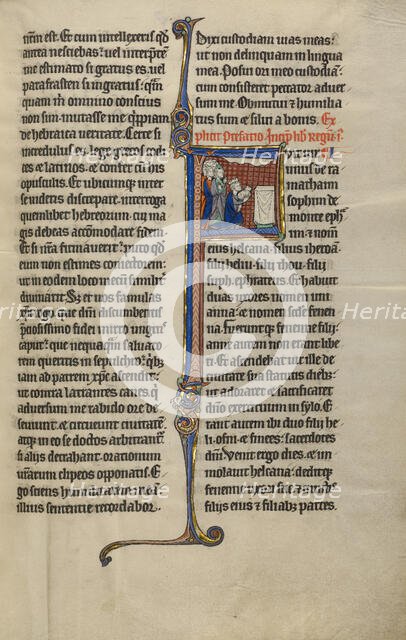 nem est. Et cum intellexeris qd
antea nesciebas: uel interpretem
me estimato si gratus es. uel
parafrasten si ingratus: qm
quam m omnino conscius
non sim mutasse me quippiam
de hebraica ueritate. Certe si
incredulus es. lege grecos codices
et latinos. et confer cum his
opusculis. Et ubicumque inter
se uideris discrepare. interroga
quemlibet hebreorum cui magis
debeas accommodare fidem.
Et si nostra firmauerit: puto qd
eum non estimes coniectorem.
ut in eodem loco mecum similiter
diuinarit. Sed et uos famulas
pciosissimo fidei mirro
caput: que nequaquam saluatorem
queritis in sepulchro. qbz
iam ad patrem xpc ascendit.
ut contra latrantes canes. q
aduersum me rabido ore
seuiunt. et circueunt ciuitatem.
atque in eo se doctos arbitrantur
si aliis detrahant. orationum
uestrarum clipeos opponatis. E
go sciens humilitatem meam:
illius sententie recordabor.
Dixi custodiam uias meas:
ut non delinquam in lingua
mea. Posui ori meo custodiam:
cum consisteret peccator aduersum
me. Obmutui et humiliatus
sum et silui a bonis. Ex
plicit Prefatio. Incipit lib Regum.
F
uit uir
unus de
ramathaim
sophim de
monte ephraim
et nomen
eius helcana. filius iheroam.
filij heliu. filij thou. filij
suph. ephrateus. Et habuit
duas uxores. nomen uni
anna: et nomen secunde
fenenna. Fueruntque fenenne filij:
anne autem non erant liberi.
Et ascendebat uir ille de
ciuitate sua statutis diebz:
ut adoraret et sacrificaret
dno exercituum in sylo. Erant
autem ibi duo filij heli.
ofni et finees: sacerdotes
dni. Venit ergo dies. et immolauit
helcana: deditque
fenenne uxori sue et cunctis
filijs eius et filiabz partes.
Heritage
Images